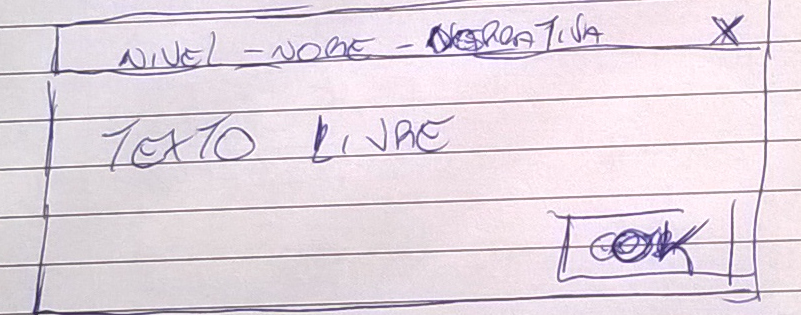 NIVEL - NOME - NARRATIVA X
TEXTO LIVRE
OK